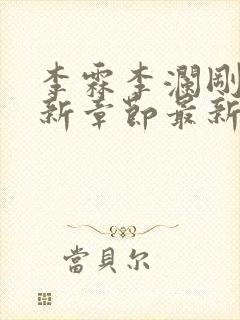 李霖李瀾剛
新章節最新
當貝尔